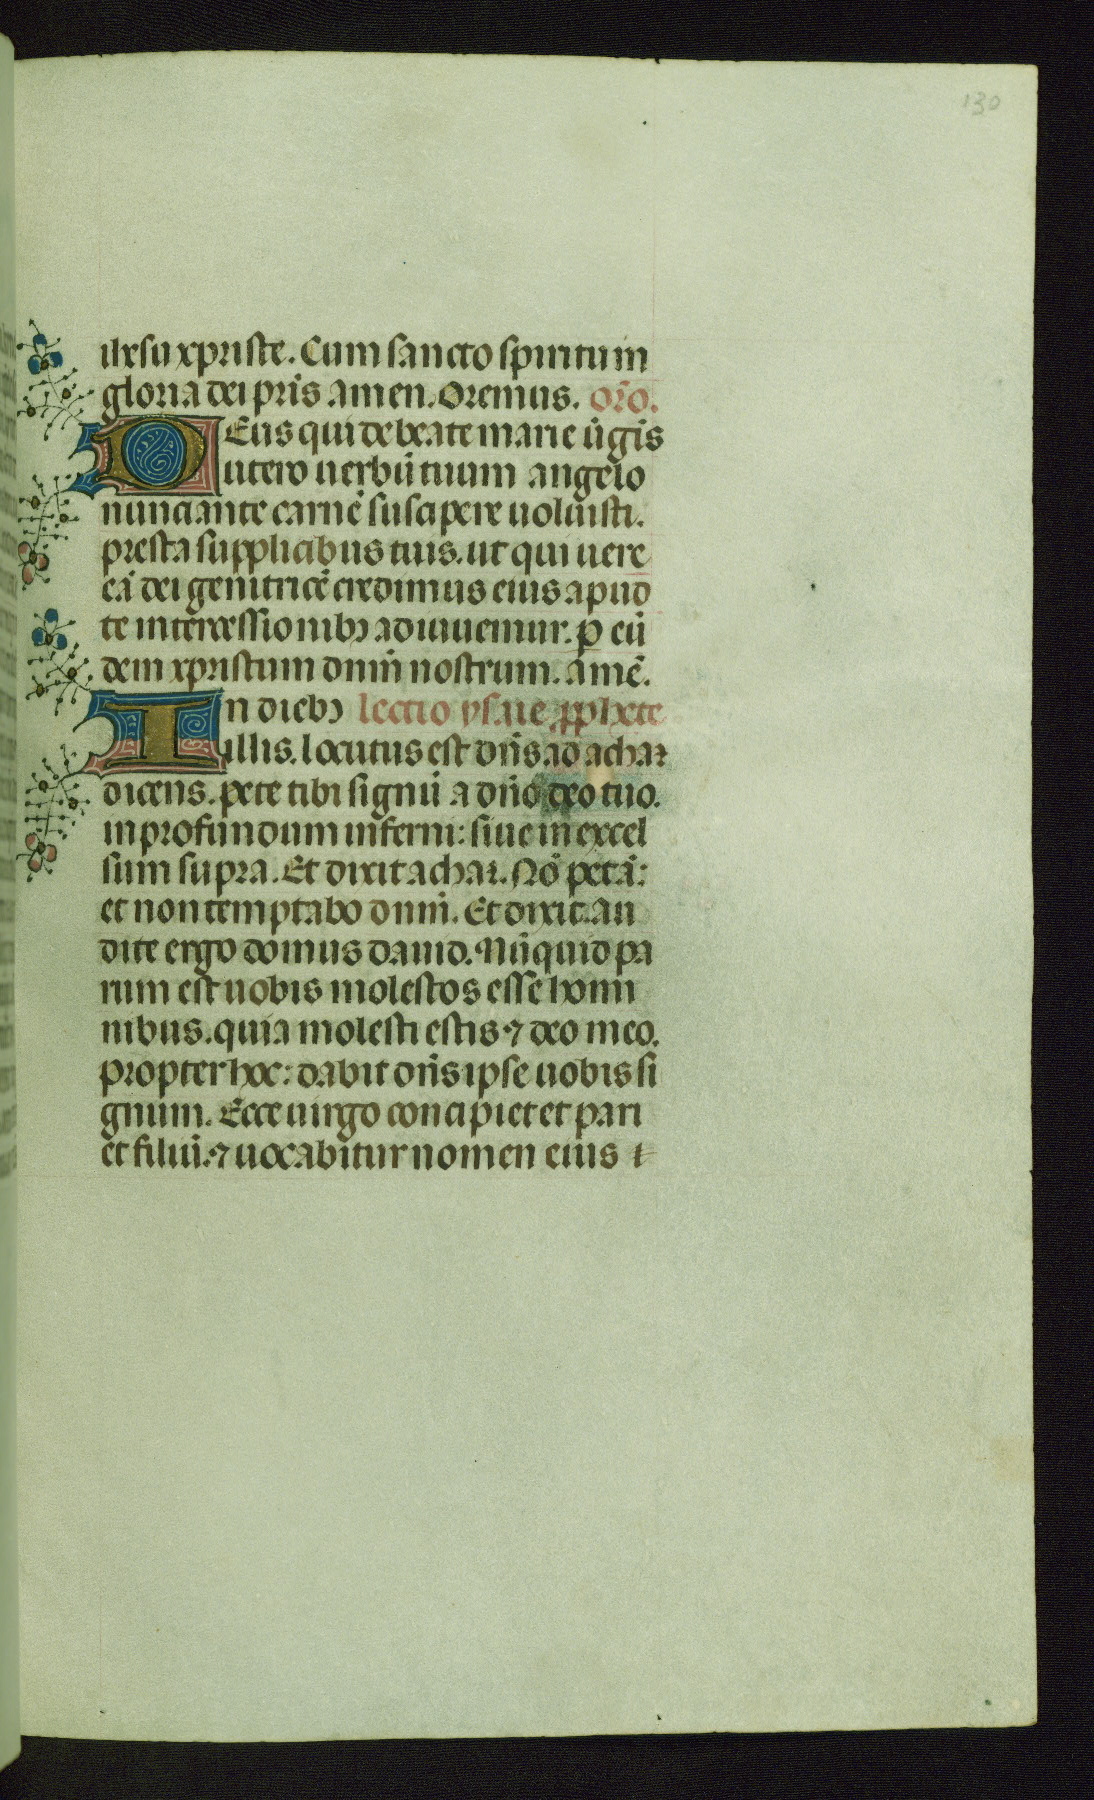 130
ihesu xpriste. Cum sancto spiritum in
gloria dei pr̄is amen. Oremus. or̄o.
DEus qui de beate marie ūgīs
utero uerbū tuum angelo
nunciante carnē suscipere uoluisti.
presta supplicibus tuis. ut qui uere
eā dei genitricē credimus eius apud
te intercessionibꝫ adiuuemur. ꝑ eū
dem xpristum dnm̄ nostrum. amē.
In diebꝫ lectio ysaie ꝓphete
illis. locutus est dn̄s ad achaz
dicens. pete tibi signū a dn̄o deo tuo.
in profundum inferni: siue in excel
sum supra. Et dixit achaz. Nō petā:
et non temptabo dnm̄. Et dixit. au
dite ergo domus dauid. Nūquid pa
rum est uobis molestos esse homi
nibus. quia molesti estis ⁊ deo meo.
propter hoc: dabit dn̄s ipse uobis si
gnum. Ecce uirgo concipiet et pari
et filiū. ⁊ uocabitur nomen eius